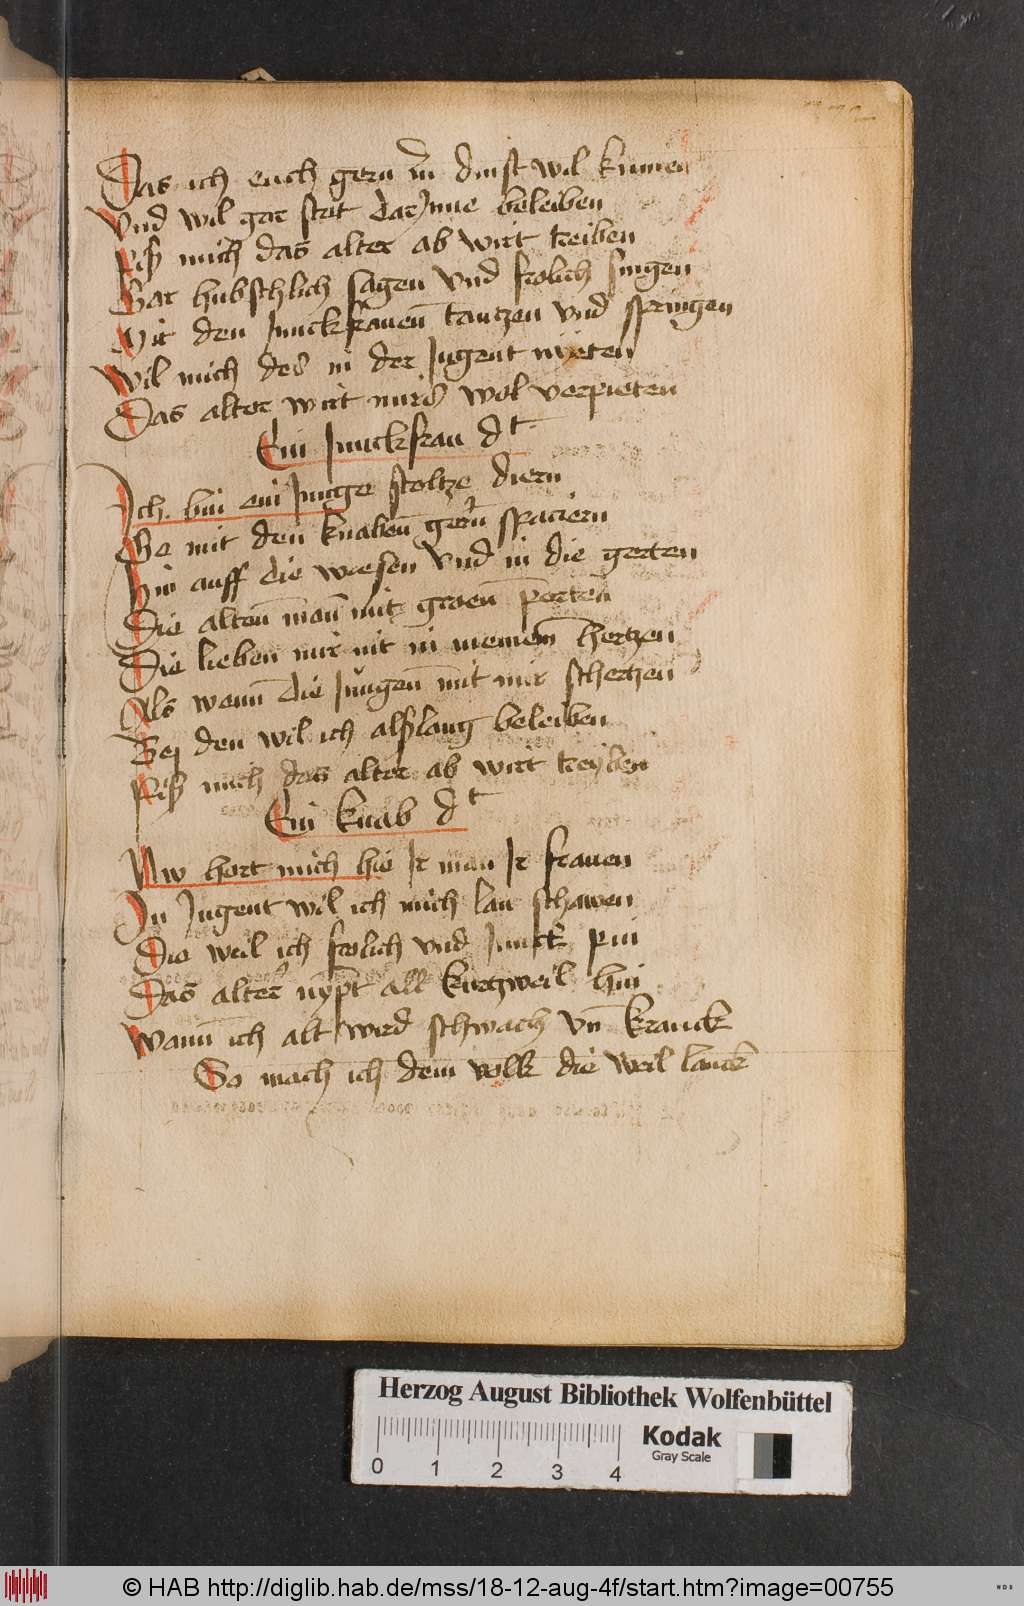 Das ich euch gern in dinst wil kumen
Vnd wil gar stet darJnne beleiben
Piß mich das alter ab wirt treiben
Gar hubschlich sagen vnd frolich singen
Mit den Junckfrauen tantzen vnd springen
Wil mich des in der Jugent nyeten
Das alter wirt mirs wol verpieten
Ein Junckfrau dt
Ich bin ein Junge stoltze diern
Ge mit den knaben gern spaciern
Hin auff die wiesen vnd in die gerten
Die alten man mit groen perten
Die lieben mir nit in meinem hertzen
Als wenn die Jungen mit mir schertzen
Bej den wil ich alßlang beleiben
Piß mich das alter ab wirt treyben
Ein knab dt
Nw hort mich hie Ir man Ir frauen
In Jugent wil ich mich lan schawen
Die weil ich frolich vnd Junck pin
Das alter nypt all kurtzweil hin
Wann ich alt wird schwach vn kranck
So mach ich dem volk die weil lanck
Herzog August Bibliothek Wolfenbüttel
Kodak
Gray Scale
0 1 2 3 4
© HAB http://diglib.hab.de/mss/18-12-aug-4f/start.htm?image=00755